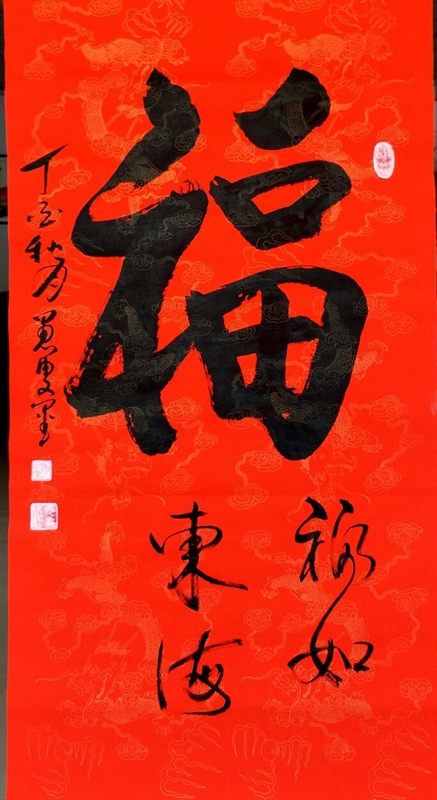 福
福如
東海
丁酉秋月